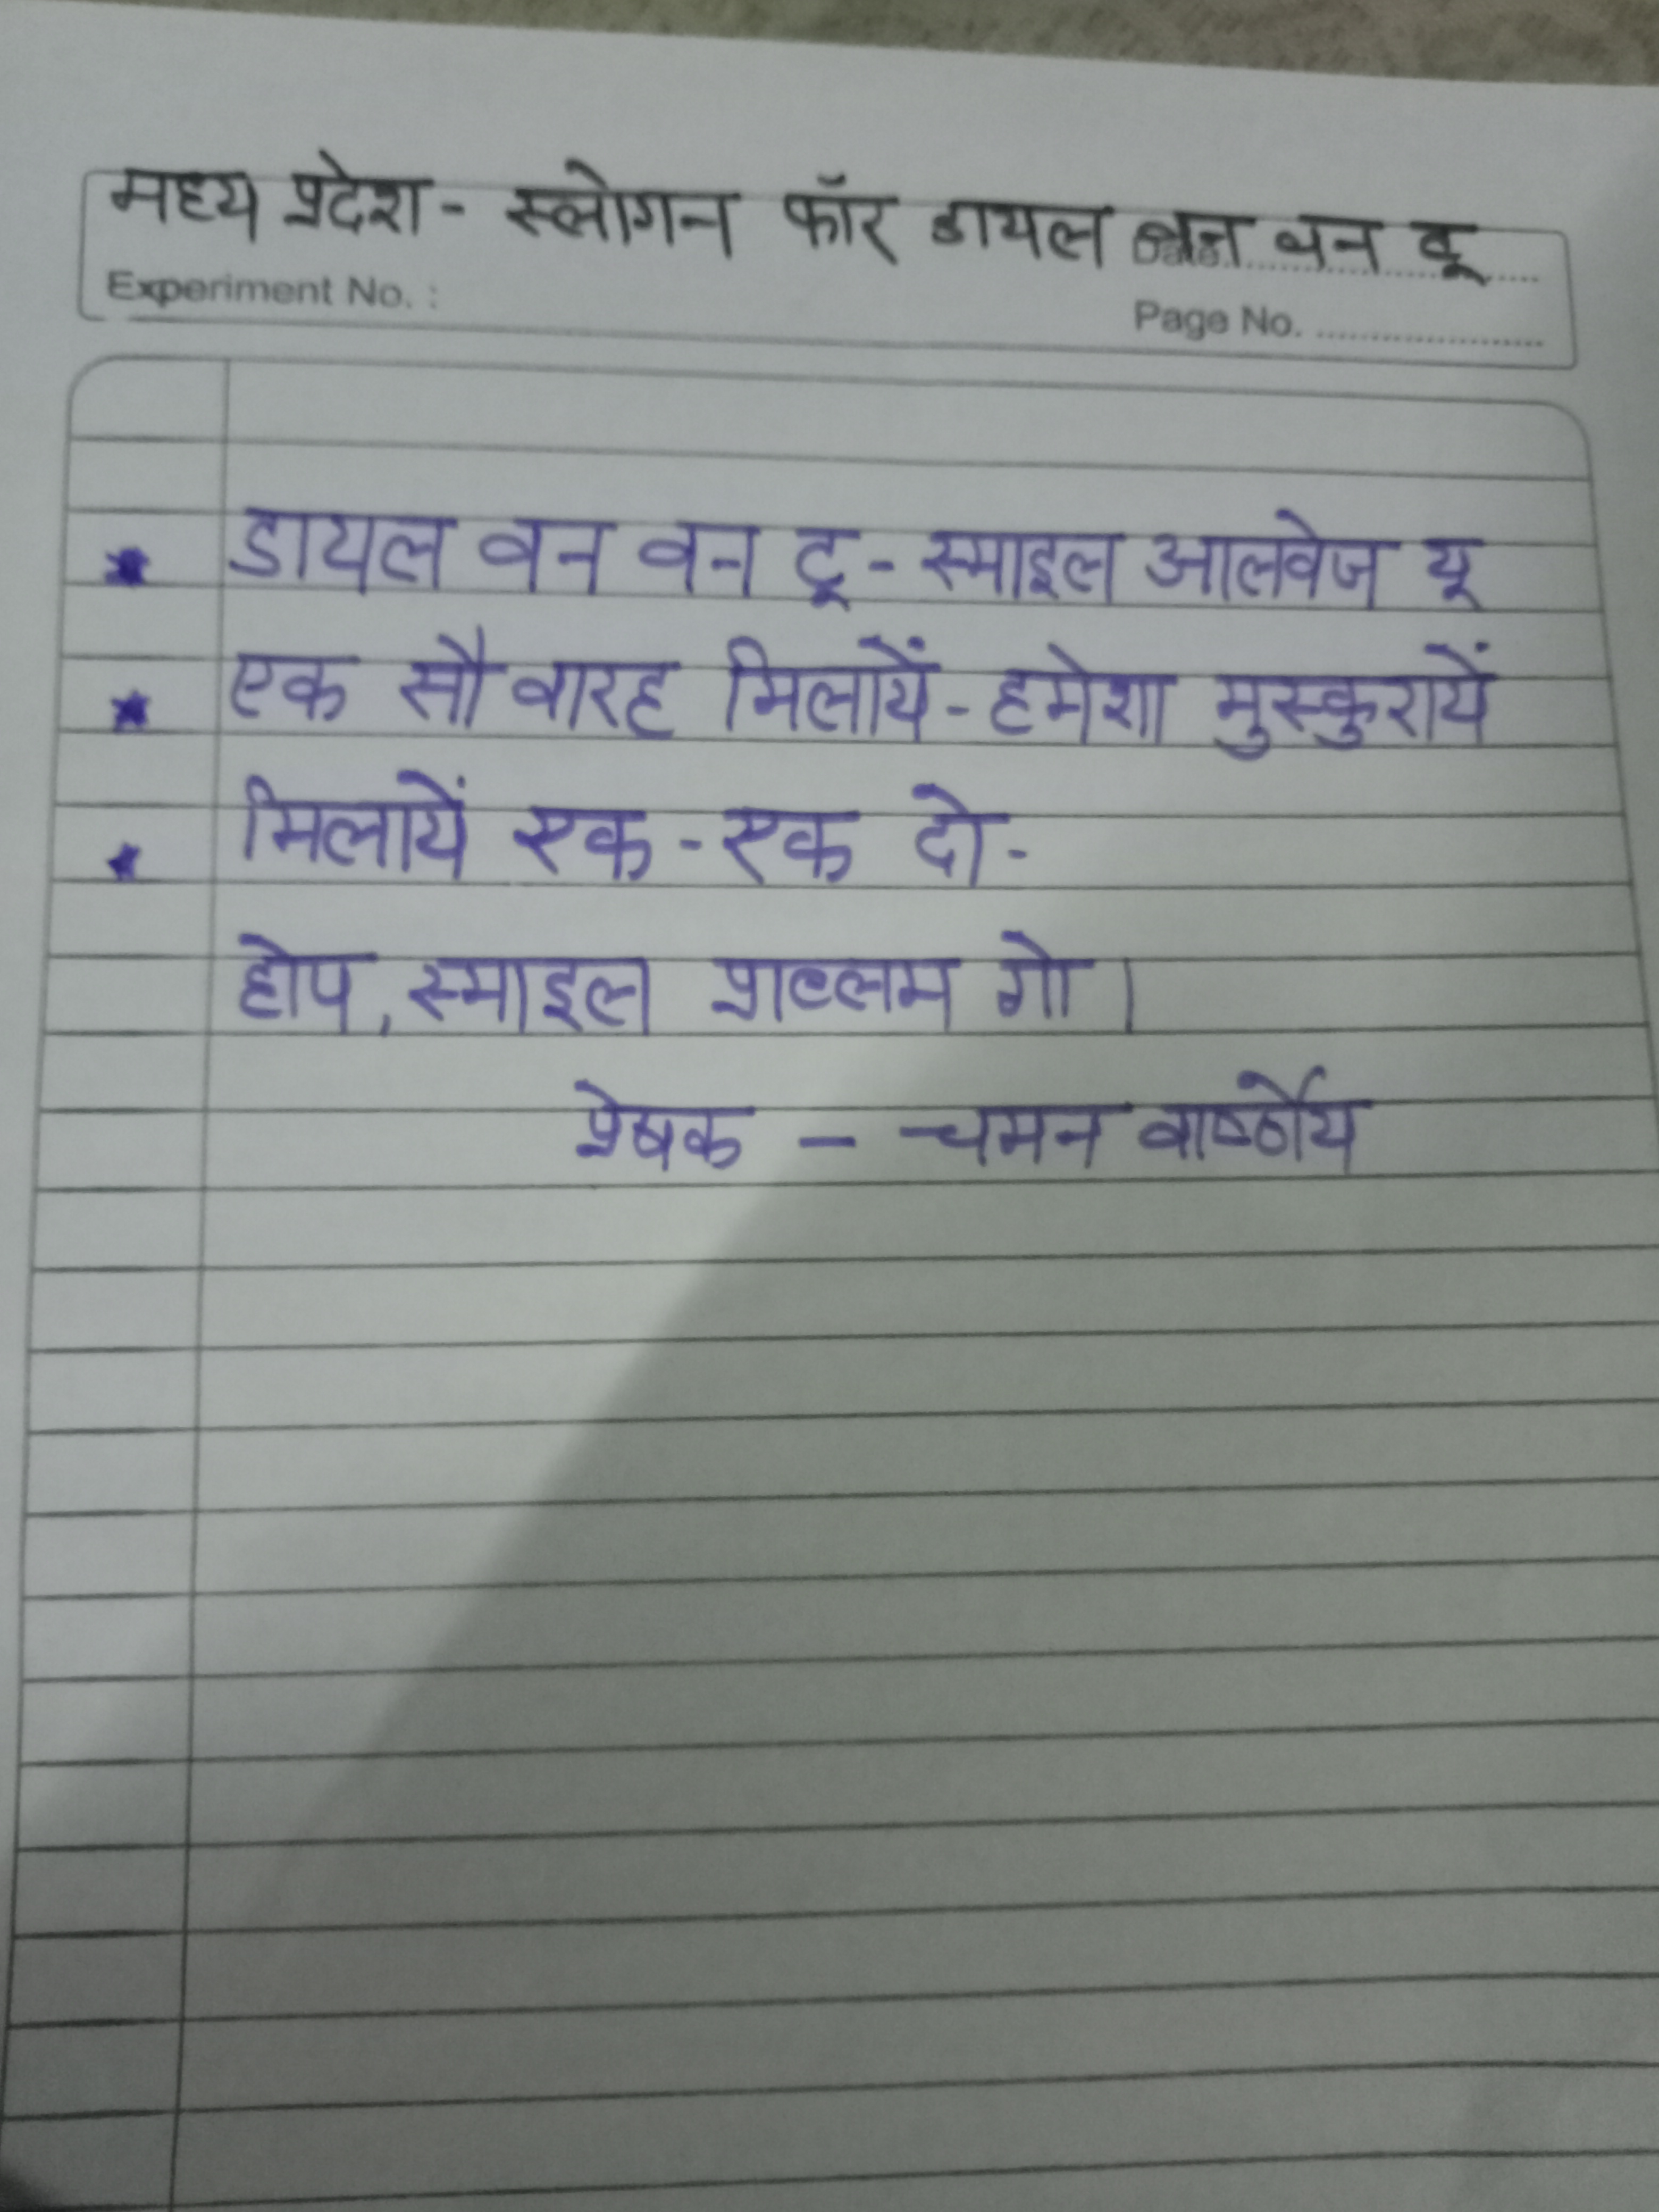 मध्य प्रदेश - स्लोगन फॉर डायल वन वन टू
Experiment No. :
Page No.
★ डायल वन वन टू - स्माइल आलवेज यू
★ एक सौ वारह मिलायें - हमेशा मुस्कुरायें
★ मिलायें एक - एक दो -
होप, स्माइल प्राब्लम गो।
प्रेषक - चमन वार्ष्णेय